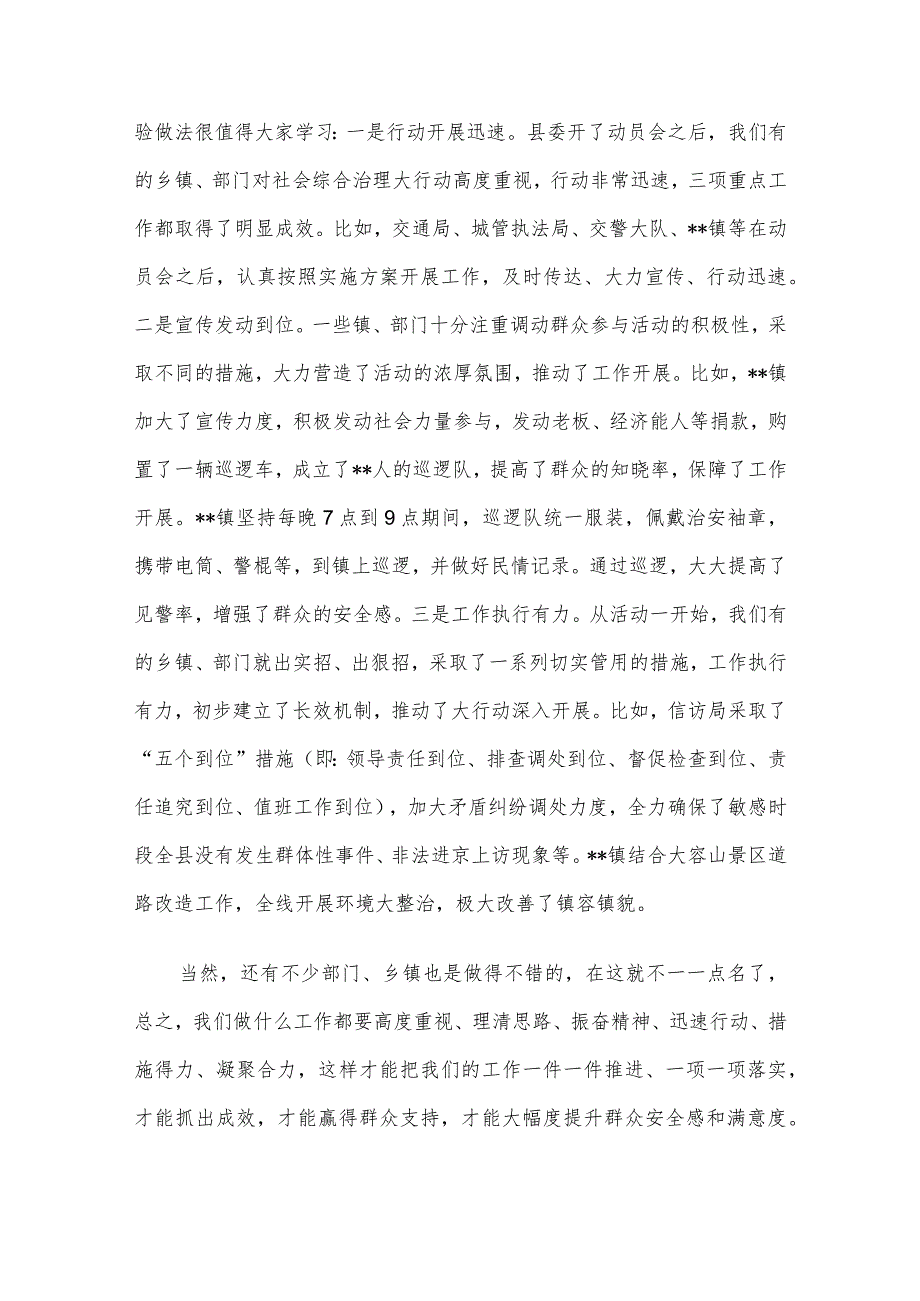 验做法很值得大家学习：一是行动开展迅速。县委开了动员会之后，我们有
的乡镇、部门对社会综合治理大行动高度重视，行动非常迅速，三项重点工
作都取得了明显成效。比如，交通局、城管执法局、交警大队、**镇等在动
员会之后，认真按照实施方案开展工作，及时传达、大力宣传、行动迅速。
二是宣传发动到位。一些镇、部门十分注重调动群众参与活动的积极性，采
取不同的措施，大力营造了活动的浓厚氛围，推动了工作开展。比如，**镇
加大了宣传力度，积极发动社会力量参与，发动老板、经济能人等捐款，购
置了一辆巡逻车，成立了**人的巡逻队，提高了群众的知晓率，保障了工作
开展。**镇坚持每晚7点到9点期间，巡逻队统一服装，佩戴治安袖章，
携带电筒、警棍等，到镇上巡逻，并做好民情记录。通过巡逻，大大提高了
见警率，增强了群众的安全感。三是工作执行有力。从活动一开始，我们有
的乡镇、部门就出实招、出狠招，采取了一系列切实管用的措施，工作执行
有力，初步建立了长效机制，推动了大行动深入开展。比如，信访局采取了
“五个到位”措施（即：领导责任到位、排查调处到位、督促检查到位、责
任追究到位、值班工作到位），加大矛盾纠纷调处力度，全力确保了敏感时
段全县没有发生群体性事件、非法进京上访现象等。**镇结合大容山景区道
路改造工作，全线开展环境大整治，极大改善了镇容镇貌。
当然，还有不少部门、乡镇也是做得不错的，在这就不一一点名了，
总之，我们做什么工作都要高度重视、理清思路、振奋精神、迅速行动、措
施得力、凝聚合力，这样才能把我们的工作一件一件推进、一项一项落实，
才能抓出成效，才能赢得群众支持，才能大幅度提升群众安全感和满意度。